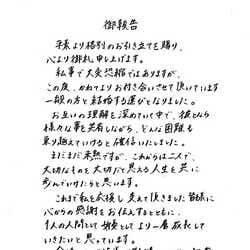 御報告
平素より格別のお引き立てを賜り、
心より御礼申し上げます。
私事で大変恐縮ではありますが、
この度、かねてよりお付き合いさせて頂いています
一般の方と結婚する運びとなりました。
お互いの理解を深めていく中で、彼となら
様々な事を共有しながら、どんな困難も
乗り越えていけると確信いたしました。
まだまだ未熟ですが、これからは二人で、
大切なものを大切だと思える人生を共に
歩んでいけたらと思います。
これまで私を応援し 支えて頂きました皆様に
心からの感謝をお伝えするとともに、
1人の人間として 増々 より一層 成長して
いきたいと思っています。